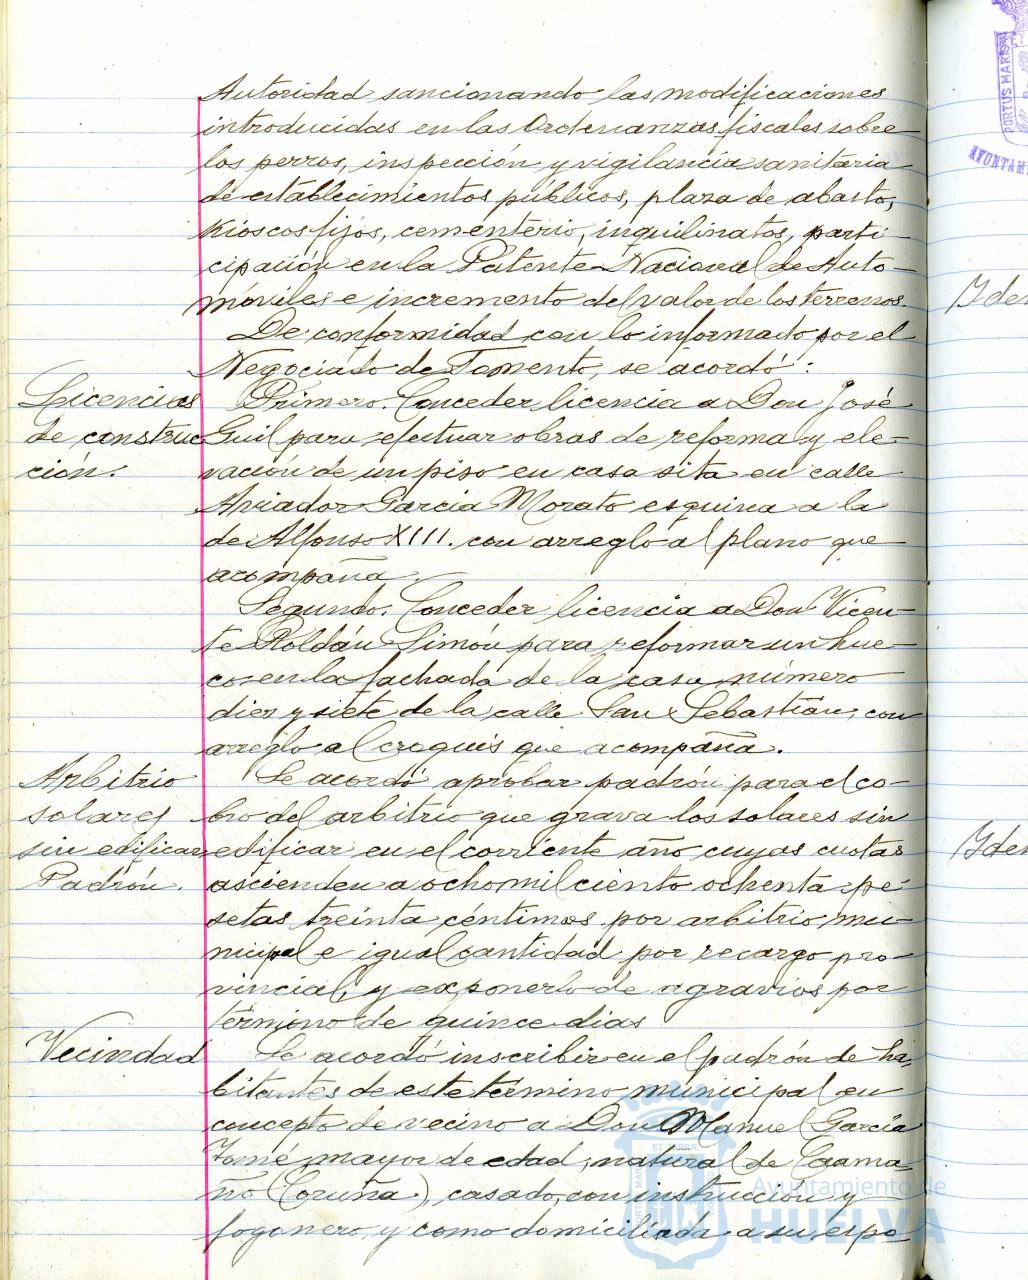 Autoridad sancionando las modificaciones
introducidas en las Ordenanzas fiscales sobre
los perros, inspección y vigilancia sanitaria
de establecimientos públicos, plaza de abasto,
Kioscos fijos, cementerio, inquilinatos, parti-
cipación en la Patente Nacional de Auto-
móviles e incremento del valor de los terrenos.
De conformidad con lo informado por el
Negociado de Fomento, se acordó:
Licencias
de construc
ción.
Primero. Conceder licencia a Don José
Guil para efectuar obras de reforma y ele-
vación de un piso en casa sita en calle
Aviador Garcia Morato esquina a la
de Alfonso XIII. con arreglo al plano que
acompaña.
Segundo. Conceder licencia a Don Vicen-
te Roldán Simón para reformar un hue-
co en la fachada de la casa número
diez y siete de la calle San Sebastián, con
arreglo al croquis que acompaña.
Arbitrio
solares
sin edificar
Padrón.
Se acordó aprobar padrón para el co-
bro del arbitrio que grava los solares sin
edificar en el corriente año cuyas cuotas
ascienden a ocho mil ciento ochenta pe-
setas treinta céntimos por arbitrio mu-
nicipal e igual cantidad por recargo pro-
vincial, y exponerlo de agravios por
término de quince dias
Vecindad
Se acordó inscribir en el padrón de ha-
bitantes de este término municipal en
concepto de vecino a Don Manuel García
Tomé mayor de edad, natural de Caama-
ño (Coruña), casado, con instrucción y
fogonero y como domiciliada a su espo
Iden
Iden
PORTUS MARIS
AYUNTAM
Ayuntamiento de
HUELVA